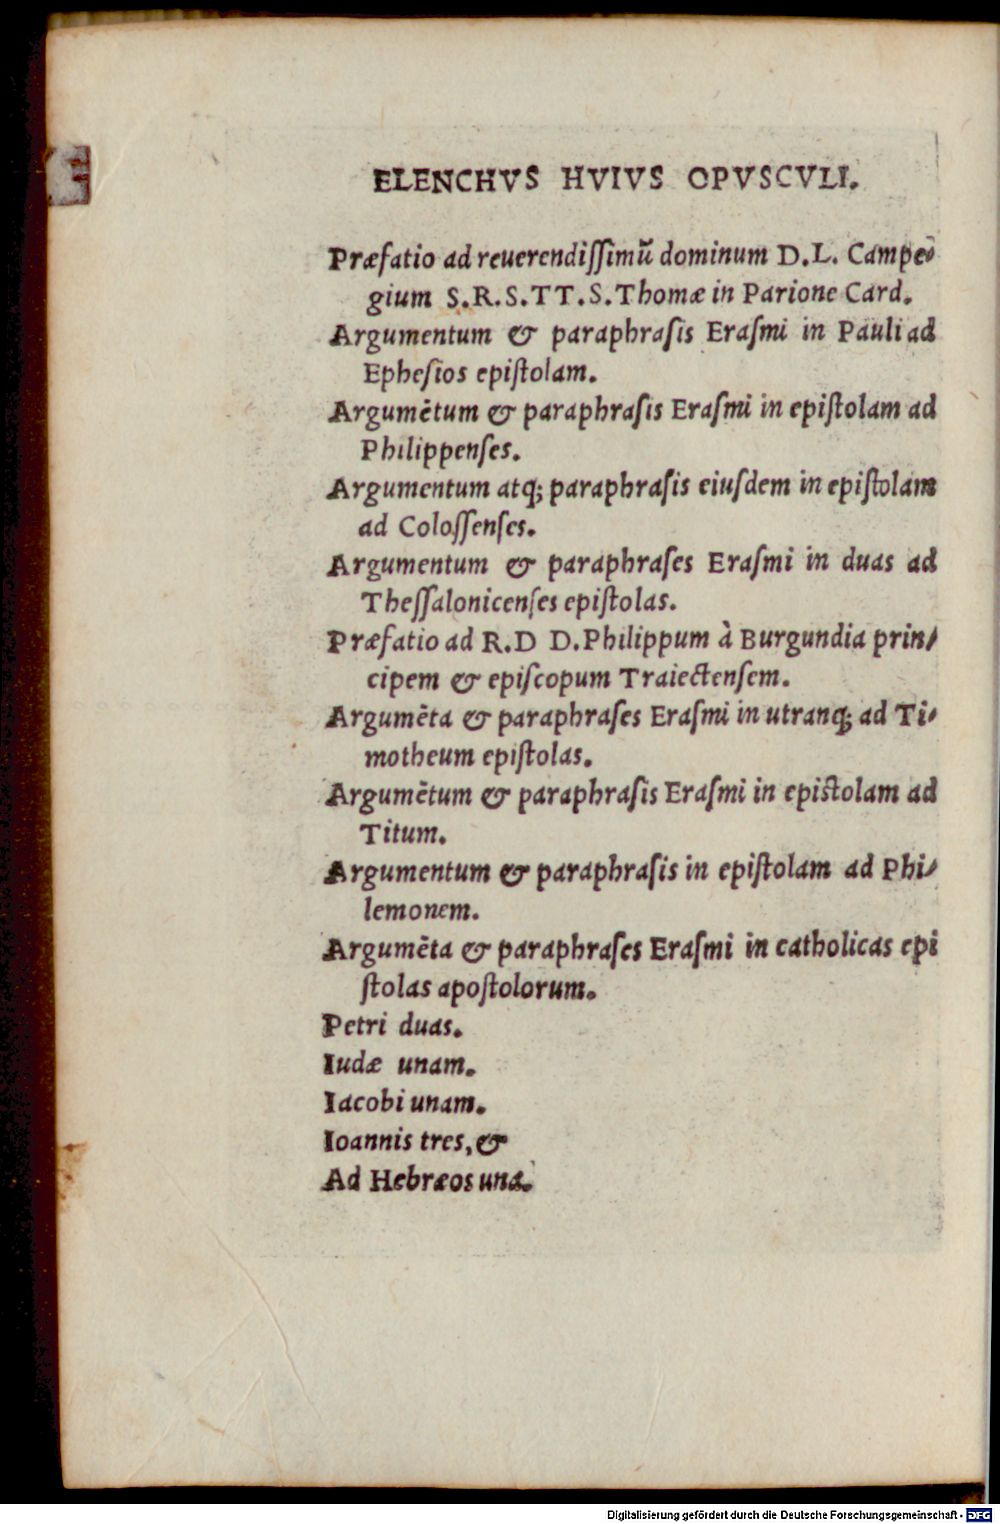 ELENCHVS HVIVS OPVSCVLI.
Præfatio ad reuerendiſſimũ dominum D.L. Campe-
gium S.R.S.TT.S.Thomæ in Parione Card.
Argumentum & paraphraſis Eraſmi in Pauli ad
Epheſios epiſtolam.
Argumẽtum & paraphraſis Eraſmi in epiſtolam ad
Philippenſes.
Argumentum atq; paraphraſis eiuſdem in epiſtolam
ad Coloſſenſes.
Argumentum & paraphraſes Eraſmi in duas ad
Theſſalonicenſes epiſtolas.
Præfatio ad R.D D.Philippum à Burgundia prin-
cipem & epiſcopum Traiectenſem.
Argumẽta & paraphraſes Eraſmi in utranq; ad Ti-
motheum epiſtolas.
Argumẽtum & paraphraſis Eraſmi in epiſtolam ad
Titum.
Argumentum & paraphraſis in epiſtolam ad Phi-
lemonem.
Argumẽta & paraphraſes Eraſmi in catholicas epi
ſtolas apoſtolorum.
Petri duas.
Iudæ unam.
Iacobi unam.
Ioannis tres, &
Ad Hebræos una.
Digitalisierung gefördert durch die Deutsche Forschungsgemeinschaft - DFG